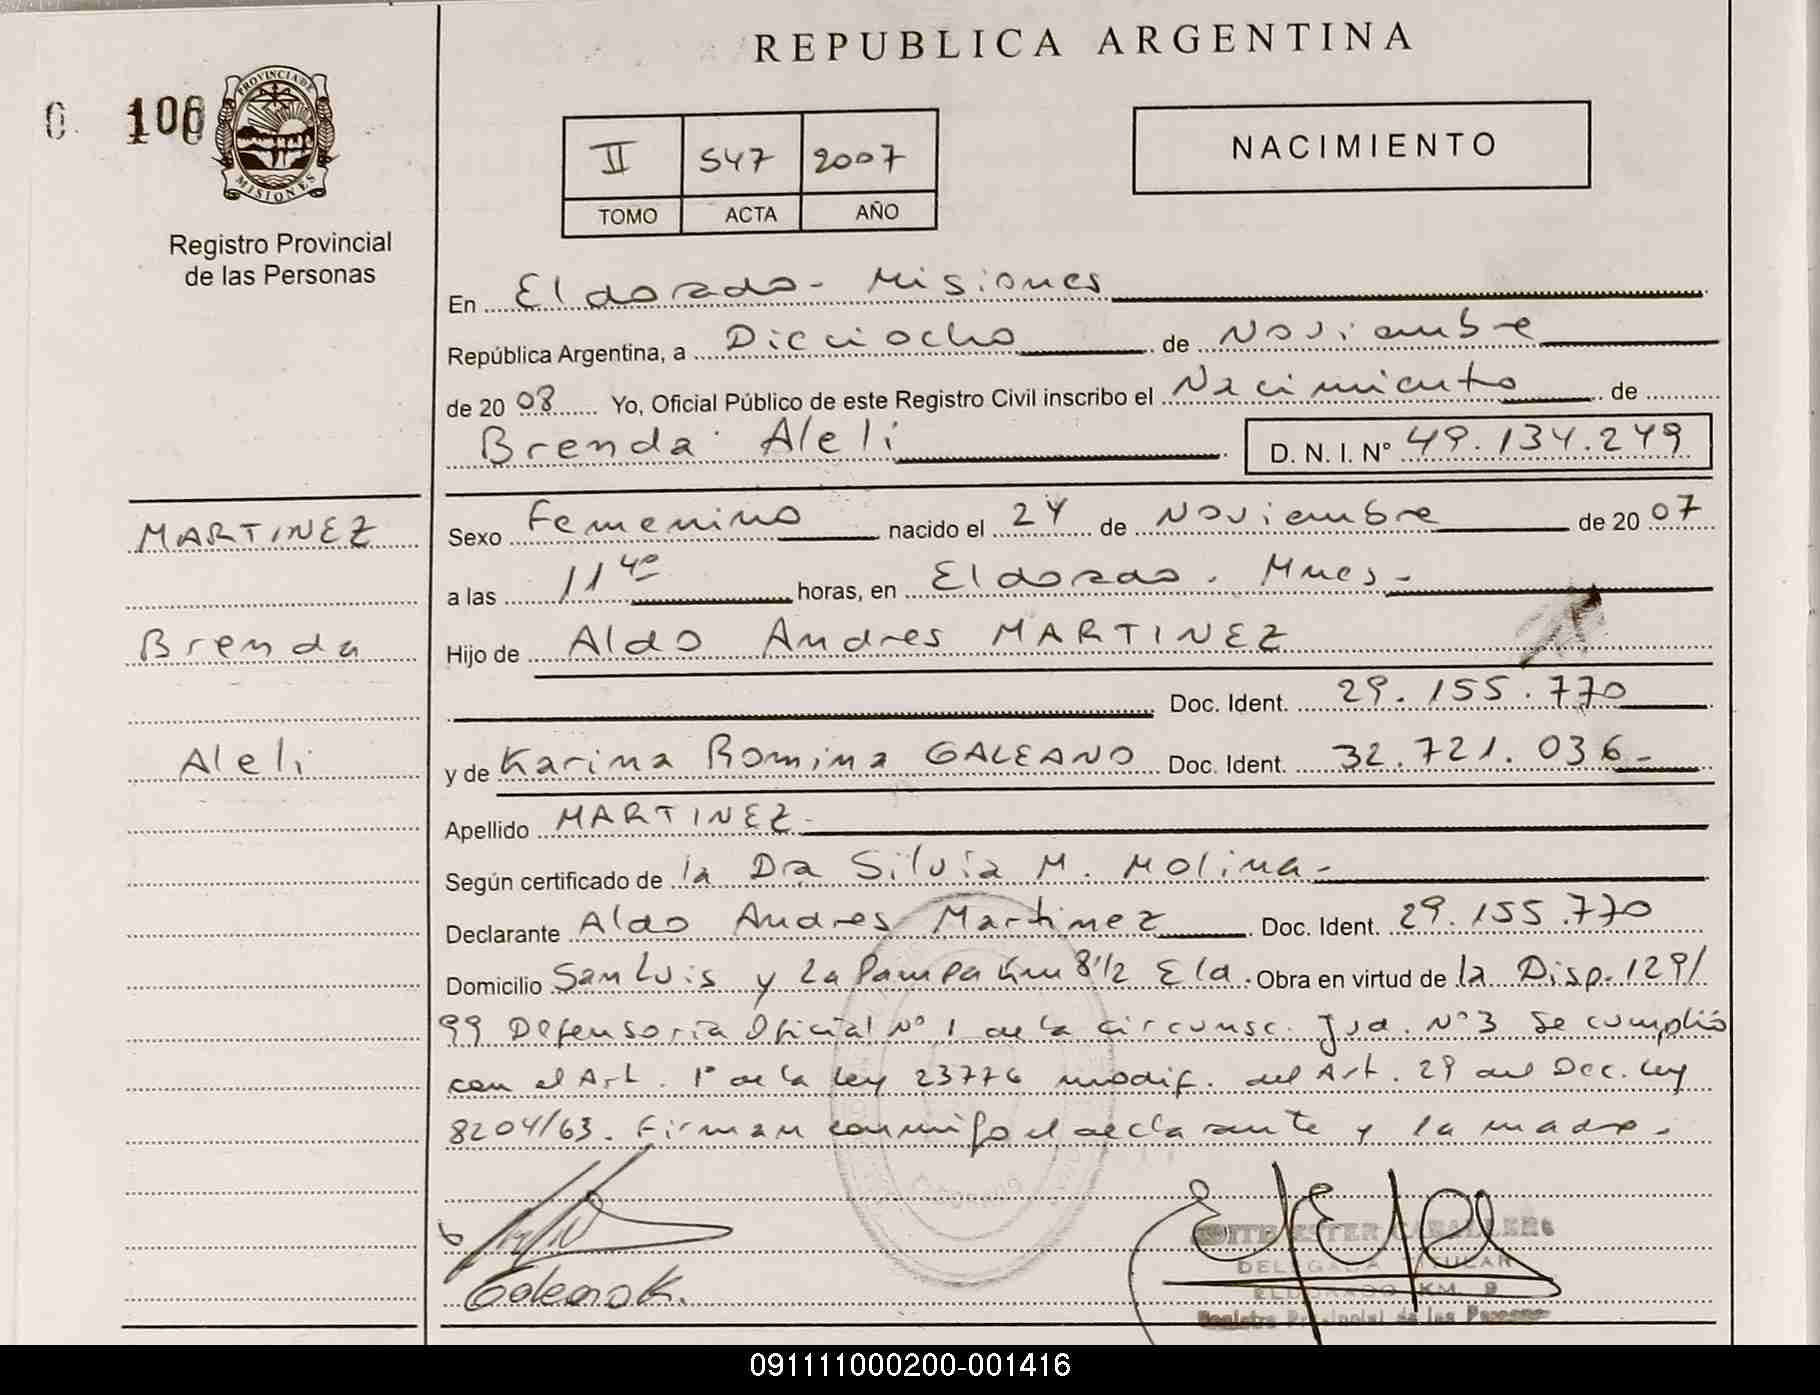 REPUBLICA ARGENTINA
0 106
PROVINCIA DE
MISIONES
Registro Provincial
de las Personas
II 547 2007
TOMO ACTA AÑO
NACIMIENTO
En Eldorado - Misiones
República Argentina, a Dieciocho de Noviembre
de 20 08 Yo, Oficial Público de este Registro Civil inscribo el Nacimiento de
Brenda Aleli D. N. I. Nº 49.134.249
MARTINEZ
Brenda
Aleli
Sexo Femenino nacido el 24 de Noviembre de 20 07
a las 11 40 horas, en Eldorado. Mnes-
Hijo de Aldo Andres MARTINEZ
Doc. Ident. 29.155.770
y de Karina Romina GALEANO Doc. Ident. 32.721.036-
Apellido MARTINEZ-
Según certificado de la Dra Silvia M. Molina-
Declarante Aldo Andres Martinez Doc. Ident. 29.155.770
Domicilio San Luis y La Pampa Km 8 1/2 Eld. Obra en virtud de la Disp. 129/
99 Defensoria Oficial Nº 1 de la circunsc. Jud. Nº 3 Se cumplió
con el Art. 1º de la Ley 23776 modif. del Art. 29 del Dec. Ley
8204/63. Firman conmigo el declarante y la madre.
Galeano K.
EDITH ESTER CABALLERO
DELEGADA TITULAR
ELDORADO KM. 9
Registro Provincial de las Personas
091111000200-001416